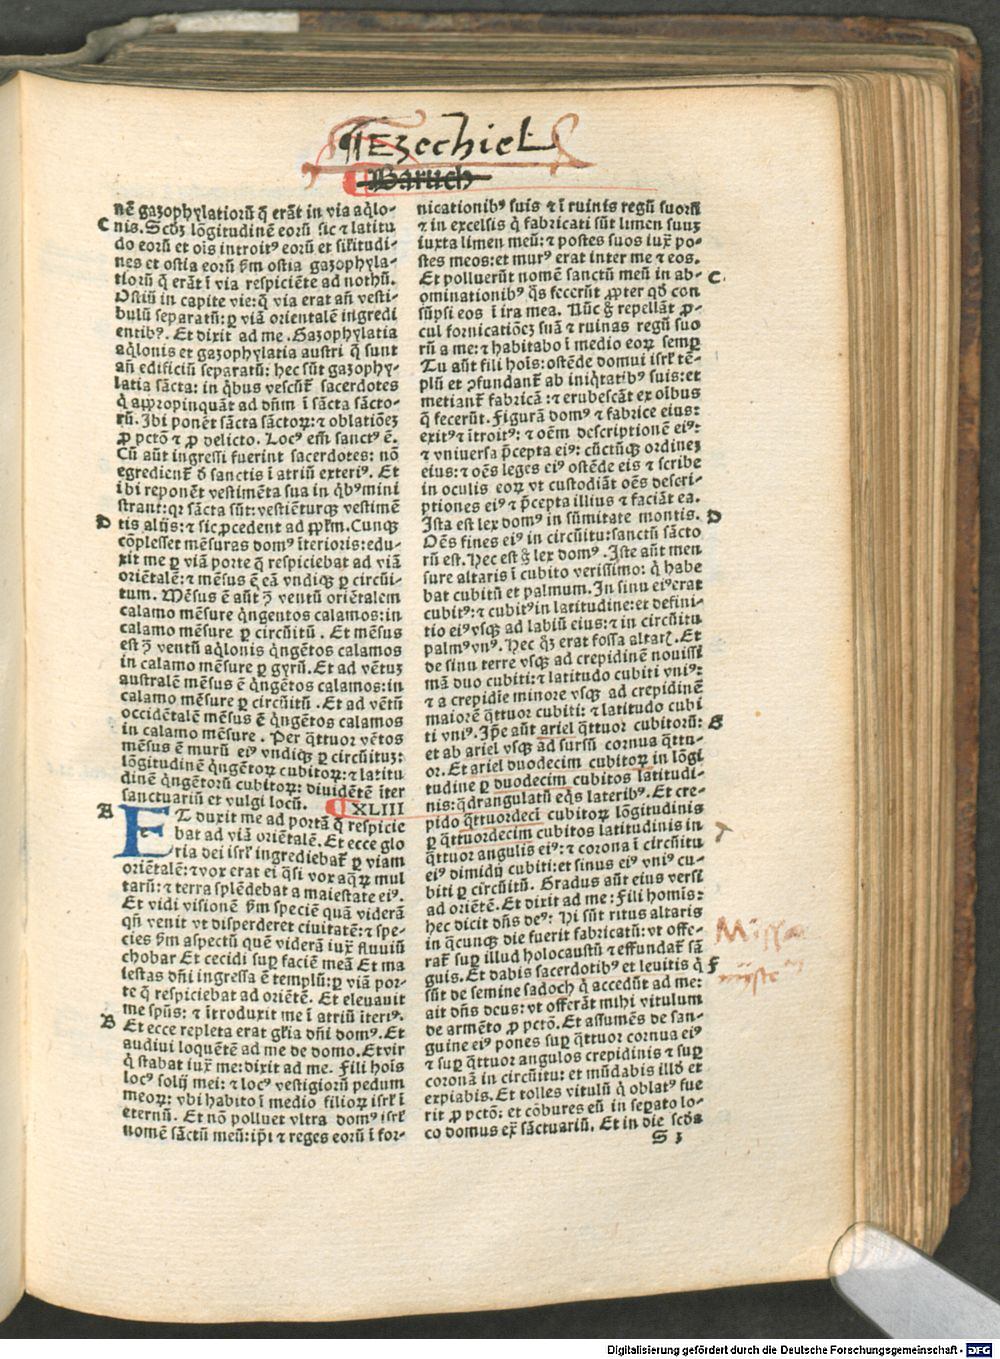 ¶ Ezechiel
Baruch
nē gazophylatioꝝ q̄ erāt in via aq̇lo-
C nis. Scd'z lōgitudinē eorū sic ⁊ latitu
do eorū et oīs introitꝰ eorū et sił'itudi-
nes et ostia eorū s'm ostia gazophyla-
tiorū q̄ erāt ī via respiciēte ad nothū.
Ostiū in capite vie: q̄ via erat an̄ vesti-
bulū separatū: ꝑ viā orientalē ingredi
entibꝰ. Et dixit ad me. Gazophylatia
aq̇lonis et gazophylatia austri q̄ sunt
an̄ edificiū separatū: hec sūt gazophy-
latia sācta: in q̇bus vescūt̄ sacerdotes
q̇ appropinquāt ad dn̄m ī sācta sācto-
rū. Ibi ponēt sācta sāctoꝝ: ⁊ oblatiōez
ꝓ pctō ⁊ ꝓ delicto. Locꝰ em̄ sanctꝰ ē.
Cū aūt ingressi fuerint sacerdotes: nō
egredient̄ d' sanctis ī atriū exteriꝰ. Et
ibi reponēt vestimēta sua in q̇bꝰ mini
strant: qꝛ sācta sūt: vestiēturqꝫ vestimē
D tis alijs: ⁊ sic ꝓcedent ad ppl'm. Cunqꝫ
cōplesset mēsuras domꝰ īterioris: edu-
xit me ꝑ viā porte q̄ respiciebat ad viā
oriētalē: ⁊ mēsus ē eā vndiqꝫ ꝑ circūi-
tum. Mēsus ē aūt ꝯ ventū oriētalem
calamo mēsure q̇ngentos calamos: in
calamo mēsure ꝑ circūitū. Et mēsus
est ꝯ ventū aq̇lonis q̇ngētos calamos
in calamo mēsure ꝑ gyrū. Et ad vētuꝫ
australē mēsus ē q̇ngētos calamos: in
calamo mēsure ꝑ circūitū. Et ad vētū
occidētalē mēsus ē q̇ngētos calamos
in calamo mēsure. Per q̄ttuor vētos
mēsus ē murū eiꝰ vndiqꝫ ꝑ circūituꝫ:
lōgitudinē q̇ngētoꝝ cubitoꝝ: ⁊ latitu
dinē q̇ngētorū cubitoꝝ: diuidētē īter
sanctuariū et vulgi locū. ¶ XLIII
A ET duxit me ad portā q̄ respicie
bat ad viā oriētalē. Et ecce glo
ria dei isrł' ingrediebat̄ ꝑ viam
oriētalē: ⁊ vox erat ei q̄si vox aq̄ꝝ mul
tarū: ⁊ terra splēdebat a maiestate eiꝰ.
Et vidi visionē s'm speciē quā viderā
qn̄ venit vt disperderet ciuitatē: ⁊ spe-
cies s'm aspectū quē viderā iux̄ fluuiū
chobar Et cecidi suꝑ faciē meā Et ma
iestas dn̄i ingressa ē templū: ꝑ viā por-
te q̄ respiciebat ad oriētē. Et eleuauit
me sp̄us: ⁊ ītroduxit me ī atriū īteriꝰ.
B Et ecce repleta erat gl'ia dn̄i domꝰ. Et
audiui loquētē ad me de domo. Et vir
q̇ stabat iux̄ me: dixit ad me. Fili hoīs
locꝰ solij mei: ⁊ locꝰ vestigiorū pedum
meoꝝ: vbi habito ī medio filioꝝ isrł' ī
eternū. Et nō polluet vltra domꝰ isrł'
nomē sāctū meū: ip̄i ⁊ reges eorū ī for-
nicationibꝰ suis ⁊ ī ruinis regū suorū
⁊ in excelsis q̇ fabricati sūt limen suuꝫ
iuxta limen meū: ⁊ postes suos iux̄ po-
stes meos: et murꝰ erat inter me ⁊ eos.
Et polluerūt nomē sanctū meū in ab- C
ominationibꝰ q̄s fecerūt ꝓpter qd' con
sūpsi eos ī ira mea. Nūc g̊ repellāt ꝓ-
cul fornicatiōeꝫ suā ⁊ ruinas regū suo
rū a me: ⁊ habitabo ī medio eoꝝ semꝑ
Tu aūt fili hoīs: ostēde domui isrł' tē-
plū et ꝯfundant̄ ab iniq̇tatibꝰ suis: et
metiant̄ fabricā: ⁊ erubescāt ex oībus
q̄ fecerūt. Figurā domꝰ ⁊ fabrice eius:
exitꝰ ⁊ ītroitꝰ: ⁊ oēm descriptionē eiꝰ:
⁊ vniuersa p̄cepta eiꝰ: cūctūqꝫ ordineꝫ
eius: ⁊ oēs leges eiꝰ ostēde eis ⁊ scribe
in oculis eoꝝ vt custodiāt oēs descri-
ptiones eiꝰ ⁊ p̄cepta illius ⁊ faciāt ea.
Ista est lex domꝰ in sūmitate montis. D
Oēs fines eiꝰ in circūitu: sanctū sācto
rū est. Hec est g̊ lex domꝰ. Iste aūt men
sure altaris ī cubito verissimo: q̇ habe
bat cubitū et palmum. In sinu eiꝰ erat
cubitꝰ: ⁊ cubitꝰ in latitudine: et defini-
tio eiꝰ vsqꝫ ad labiū eius: ⁊ in circūitu
palmꝰ vnꝰ. Hec q̊ꝫ erat fossa altarꝭ. Et
de sinu terre vsqꝫ ad crepidinē nouissi
mā duo cubiti: ⁊ latitudo cubiti vniꝰ:
⁊ a crepidīe minore vsqꝫ ad crepidinē
maiorē q̄ttuor cubiti: ⁊ latitudo cubi
ti vniꝰ. Ip̄e aūt ariel q̄ttuor cubitorū: E
et ab ariel vsqꝫ ad sursū cornua q̄ttu-
or. Et ariel duodecim cubitoꝝ in lōgi
tudine ꝑ duodecim cubitos latitudi-
nis: q̄drangulatū eq̄s lateribꝰ. Et cre-
pido q̄ttuordeci cubitoꝝ lōgitudinis
ꝑ q̄ttuordecim cubitos latitudinis in
q̄ttuor angulis eiꝰ: ⁊ corona ī circūitu
eiꝰ dimidij cubiti: et sinus eiꝰ vniꝰ cu-
biti ꝑ circūitū. Gradus aūt eius versi
ad oriētē. Et dixit ad me: Fili homīs:
hec dicit dn̄s deꝰ: Hi sūt ritus altaris
in q̄cunqꝫ die fuerit fabricatū: vt offe-
rat̄ suꝑ illud holocaustū ⁊ effundat̄ sā
guis. Et dabis sacerdotibꝰ et leuitis q̇ F
sūt de semine sadoch q̇ accedūt ad me:
ait dn̄s deus: vt offerāt mihi vitulum
de armēto ꝓ pctō. Et assumēs de san-
guine eiꝰ pones suꝑ q̄ttuor cornua eiꝰ
⁊ suꝑ q̄ttuor angulos crepidinis ⁊ suꝑ
coronā in circūitu: et mūdabis illd' et
expiabis. Et tolles vitulū q̇ oblatꝰ fue
rit ꝓ pctō: et cōbures eū in seꝑato lo-
co domus ex̄ sāctuariū. Et in die scd'a
S 3
Digitalisierung gefördert durch die Deutsche Forschungsgemeinschaft - DFG